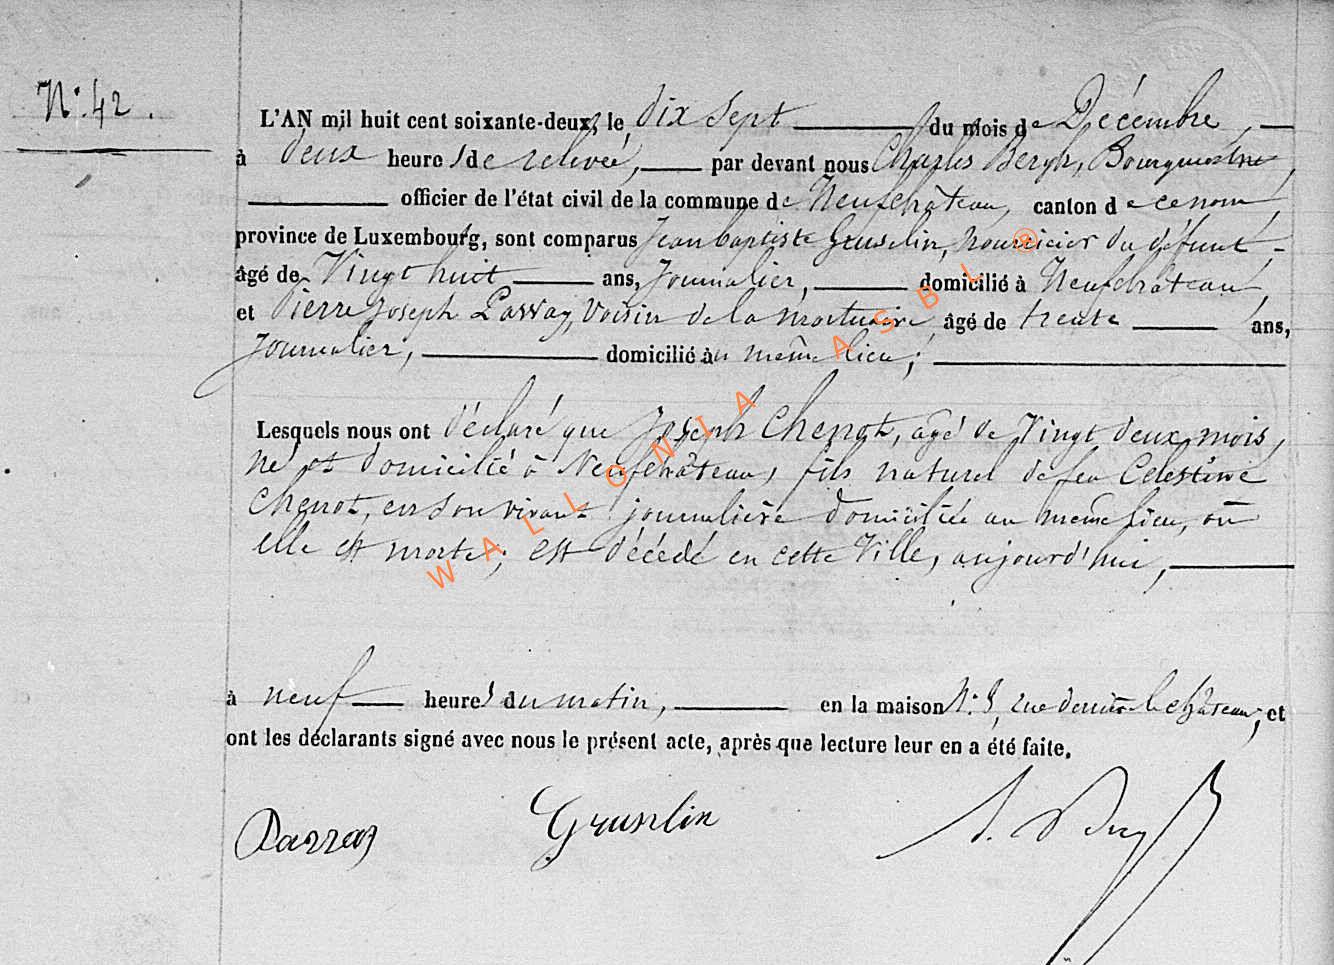 N° 42.
L'AN mil huit cent soixante-deux, le dix sept du mois de Décembre,
à deux heures de relevée, par devant nous Charles Bergh, Bourgmestre,
officier de l'état civil de la commune de Neufchâteau, canton de ce nom,
province de Luxembourg, sont comparus Jean baptiste Gruslin, nourricier du défunt,
âgé de Vingt huit ans, Journalier, domicilié à Neufchâteau,
et Pierre Joseph Passay, voisin de la mortuaire, âgé de trente ans,
Journalier, domicilié au même lieu;
Lesquels nous ont déclaré que Joseph Chenot, agé de Vingt deux mois,
né et domicilié à Neufchâteau, fils naturel de feu Célestine
Chenot, en son vivant journalière domiciliée au même lieu, où
elle est morte; est décédé en cette Ville, aujourd'hui,
à neuf heures du matin, en la maison N° 8, rue derrière le château; et
ont les déclarants signé avec nous le présent acte, après que lecture leur en a été faite.
Passay Gruslin
WALLONIA ASBL ®